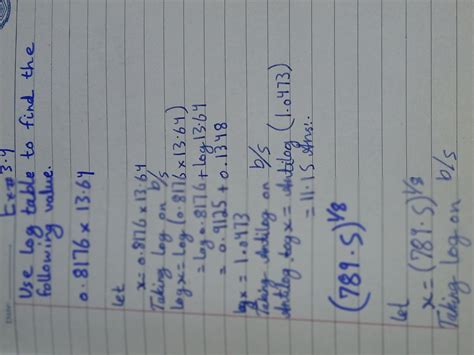 Ex# 3.4
Use log table to find the
following value.
0.8176 x 13.64
let
x = 0.8176 x 13.64
Taking log on b/s
log x = log (0.8176 x 13.64)
= log 0.8176 + log 13.64
= 0.9125 + 0.1348
log x = 1.0473
Taking Antilog on b/s
Antilog log x = Antilog (1.0473)
= 11.15 Ans:.
(789.5)^1/8
let
x = (789.5)^1/8
Taking log on b/s